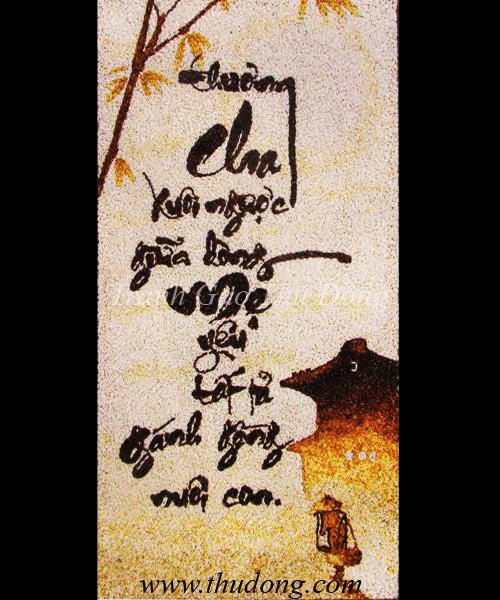 Thương
Cha
xuôi ngược
giữa dòng
Mẹ
yêu
tất tả
gánh gồng
nuôi con.
Tranh Gạo Thu Đông
www.thudong.com